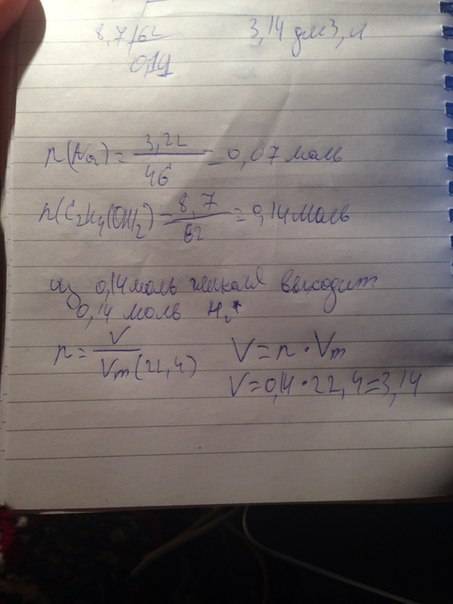 8,7/62 3,14 дм3, л
0,14
n(Na) = 3,22/46 = 0,07 моль
n(C2H4(OH)2) = 8,7/62 = 0,14 моль
из 0,14 моль выходит
0,14 моль H2
n = V/Vm(22,4) V = n • Vm
V = 0,14 • 22,4 = 3,14